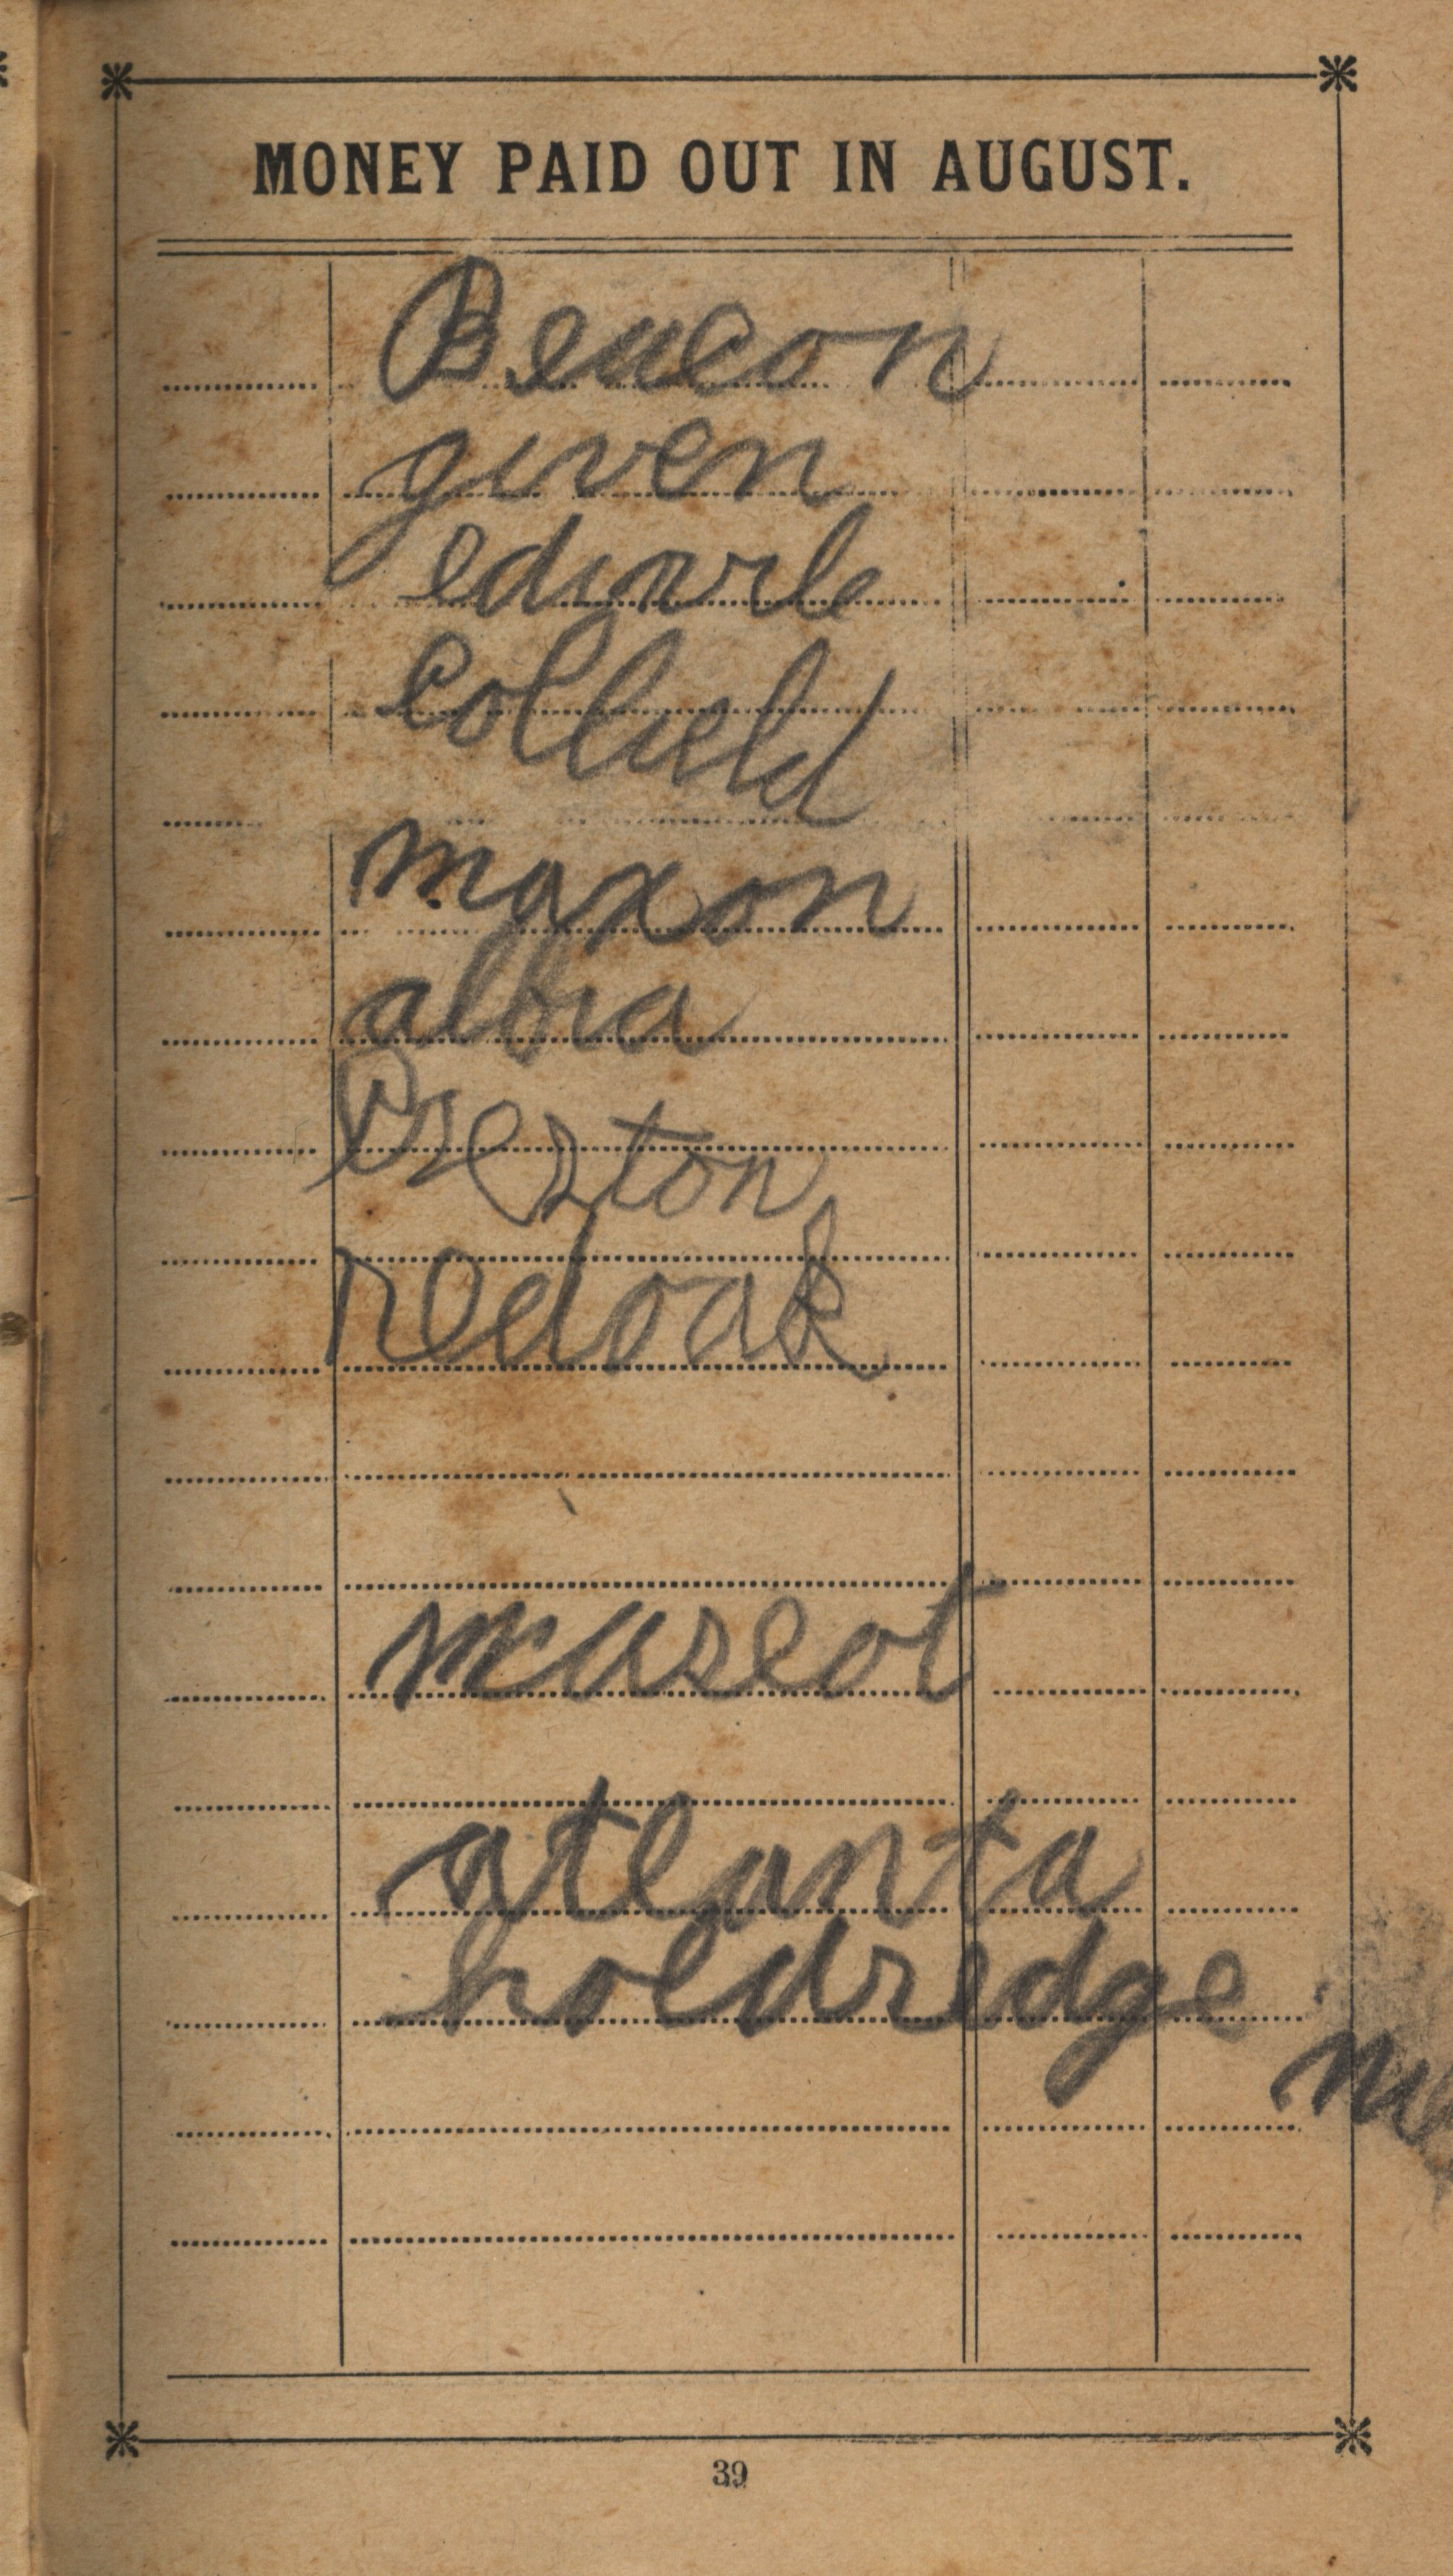 MONEY PAID OUT IN AUGUST.
Beacon
given
edivile
Colfield
maxon
albia
Creston
redoak
mascot
atlanta
holdredge
39